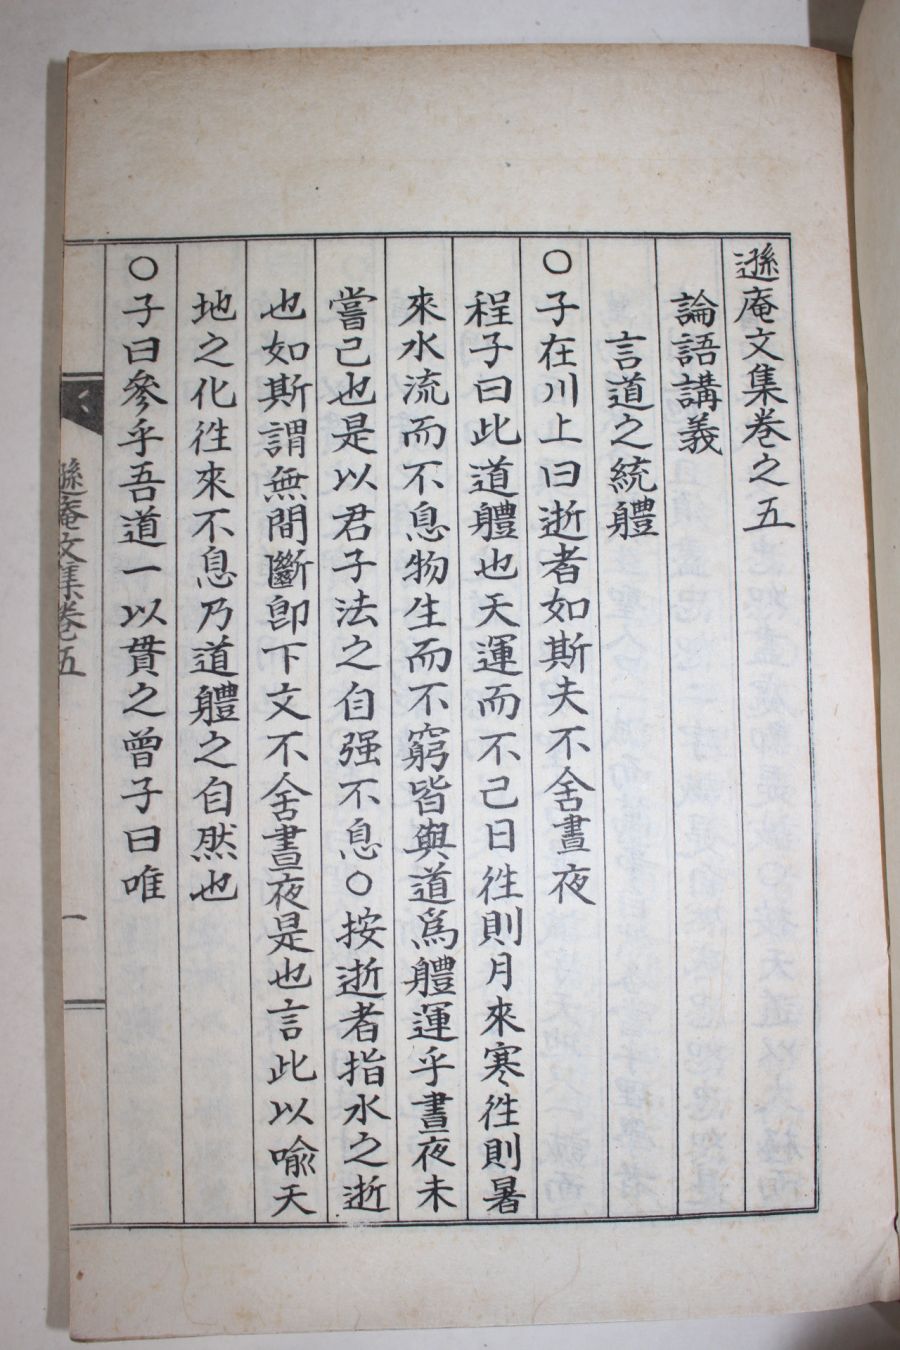 遜庵文集卷之五
論語講義
言道之統體
○子在川上曰逝者如斯夫不舍晝夜
程子曰此道體也天運而不已日徃則月來寒徃則暑
來水流而不息物生而不窮皆與道爲體運乎晝夜未
嘗已也是以君子法之自强不息○按逝者指水之逝
也如斯謂無間斷卽下文不舍晝夜是也言此以喩天
地之化徃來不息乃道體之自然也
○子曰參乎吾道一以貫之曾子曰唯
遜庵文集卷五
一